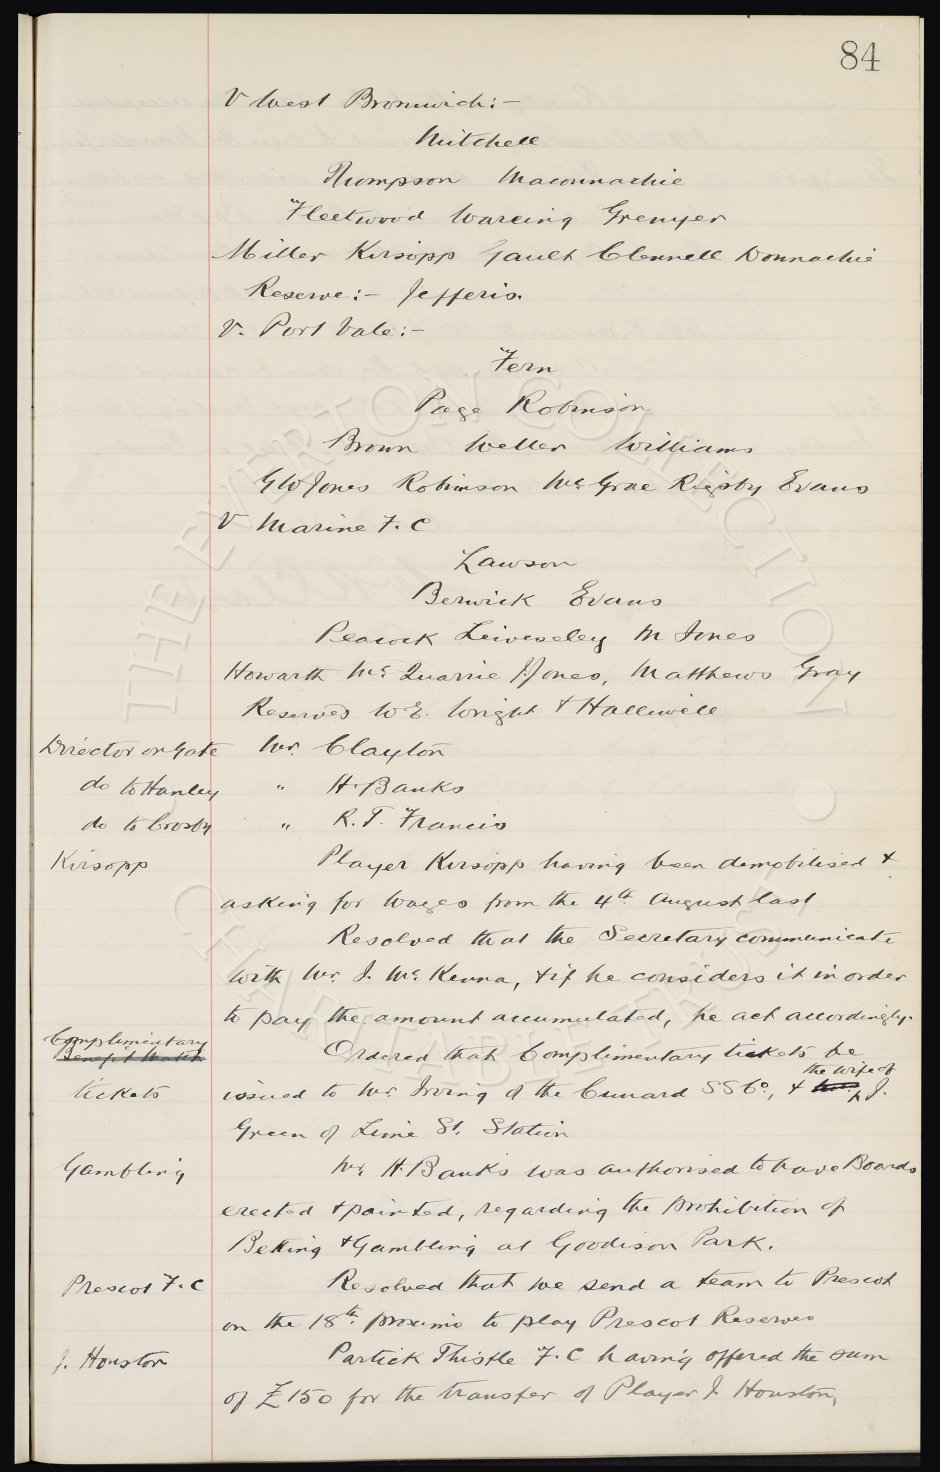 84
V West Bromwich:-
Mitchell
Thompson Maconnachie
Fleetwood Wareing Grenyer
Miller Kirsopp Gault Clennell Donnachie
Reserve:- Jefferis.
V. Port Vale:-
Fern
Page Robinson
Brown Weller Williams
G W Jones Robinson McGrae Rigsby Evans
V Marine F.C
Lawson
Berwick Evans
Peacock Leivesley M Jones
Howarth McQuarrie J. Jones, Matthews Gray
Reserves W.E. Wright & Halliwell
Director on Gate Mr. Clayton
do to Hanley " H. Banks
do to Crosby " R. T. Francis
Kirsopp Player Kirsopp having been demobilised &
asking for wages from the 4th August last
Resolved that the Secretary communicate
with Mr. J. McKenna, & if he considers it in order
to pay the amount accumulated, he act accordingly.
Complimentary
Benefit Match Ordered that Complimentary tickets be
the wife of
tickets issued to Mr. Irving of the Cunard SS Co., & J.
Green of Lime St. Station
Gambling Mr H. Banks was authorised to have Boards
erected & painted, regarding the prohibition of
Betting & Gambling at Goodison Park.
Prescot F.C Resolved that we send a team to Prescot
on the 18th. proximo to play Prescot Reserves
J. Houston Partick Thistle F.C having offered the sum
of £150 for the transfer of Player J. Houston,
THE EVERTON COLLECTION
CHARITABLE TRUST